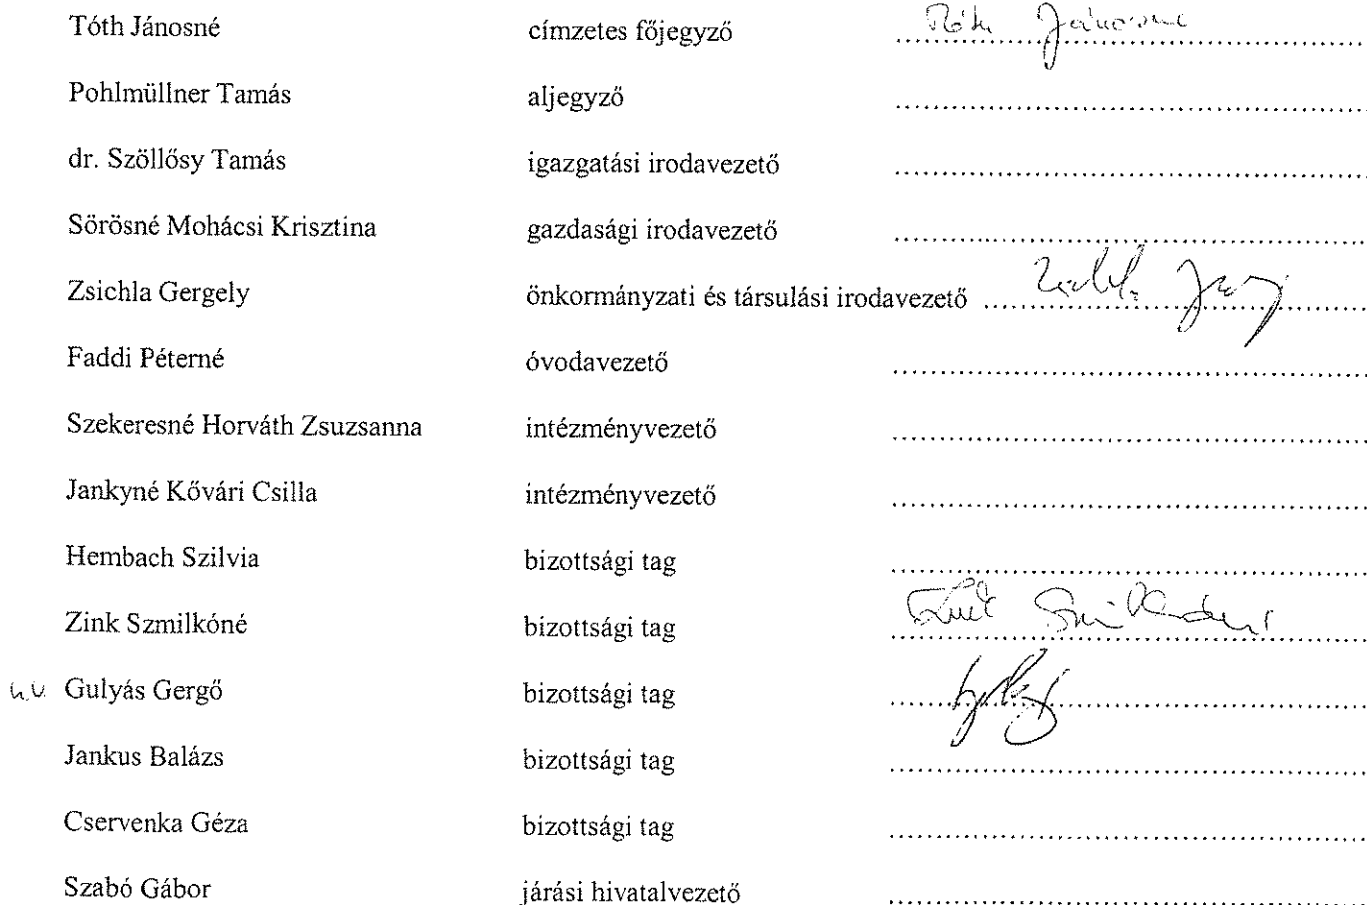 Tóth Jánosné címzetes főjegyző ........ Tóth Jánosné
Pohlmüllner Tamás aljegyző ........
dr. Szöllősy Tamás igazgatási irodavezető ........
Sörösné Mohácsi Krisztina gazdasági irodavezető ........
Zsichla Gergely önkormányzati és társulási irodavezető ........
Faddi Péterné óvodavezető ........
Szekeresné Horváth Zsuzsanna intézményvezető ........
Jankyné Kővári Csilla intézményvezető ........
Hembach Szilvia bizottsági tag ........
Zink Szmilkóné bizottsági tag ........ Zink Szmilkóné
Gulyás Gergő bizottsági tag ........
Jankus Balázs bizottsági tag ........
Cservenka Géza bizottsági tag ........
Szabó Gábor járási hivatalvezető ........